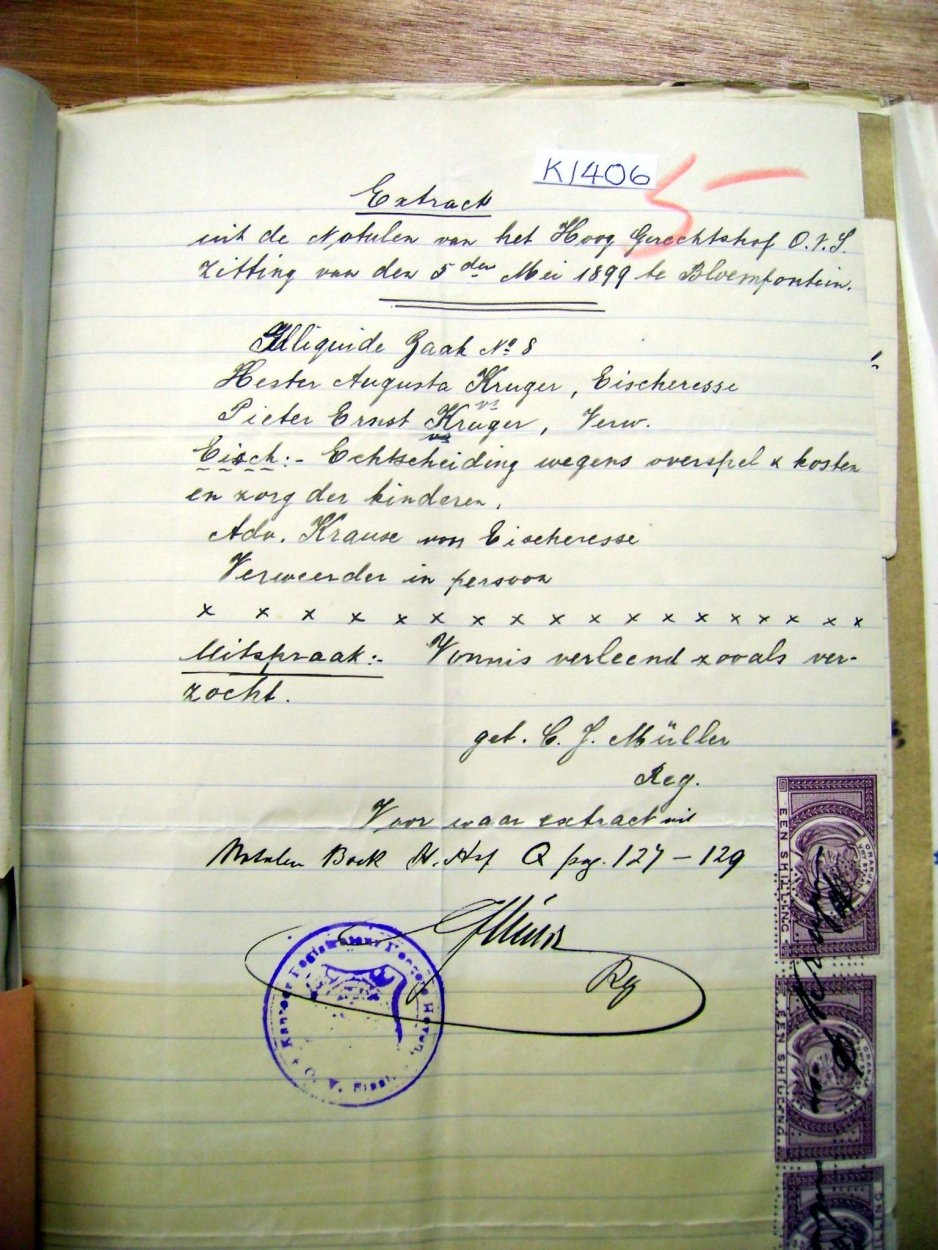 K1406
Extract
uit de Notulen van het Hoog Gerechtshof O.V.S.
Zitting van den 5den Mei 1899 te Bloemfontein.
Illiquide Zaak No 8
Hester Augusta Kruger, Eischeresse
vs
Pieter Ernst Kruger, Verw.
Eisch:- Echtscheiding wegens overspel & kosten
en zorg der kinderen.
Adv. Krause voor Eischeresse
Verweerder in persoon
x x x x x x x x x x x x x x x x x
Uitspraak:- Vonnis verleend zooals ver-
zocht.
get. C. J. Müller
Reg.
Voor waar extract uit
Notulen Boek H. Hof Q pag. 127 - 129
Reg
Kantoor Registrateur
O. V. Staat
EEN SHILLING
EEN SHILLING